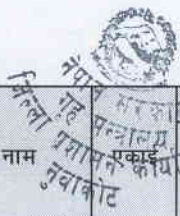 नेपाल सरकार
गृह मन्त्रालय
जिल्ला प्रशासन कार्या
नुवाकोट
नाम
एकाई